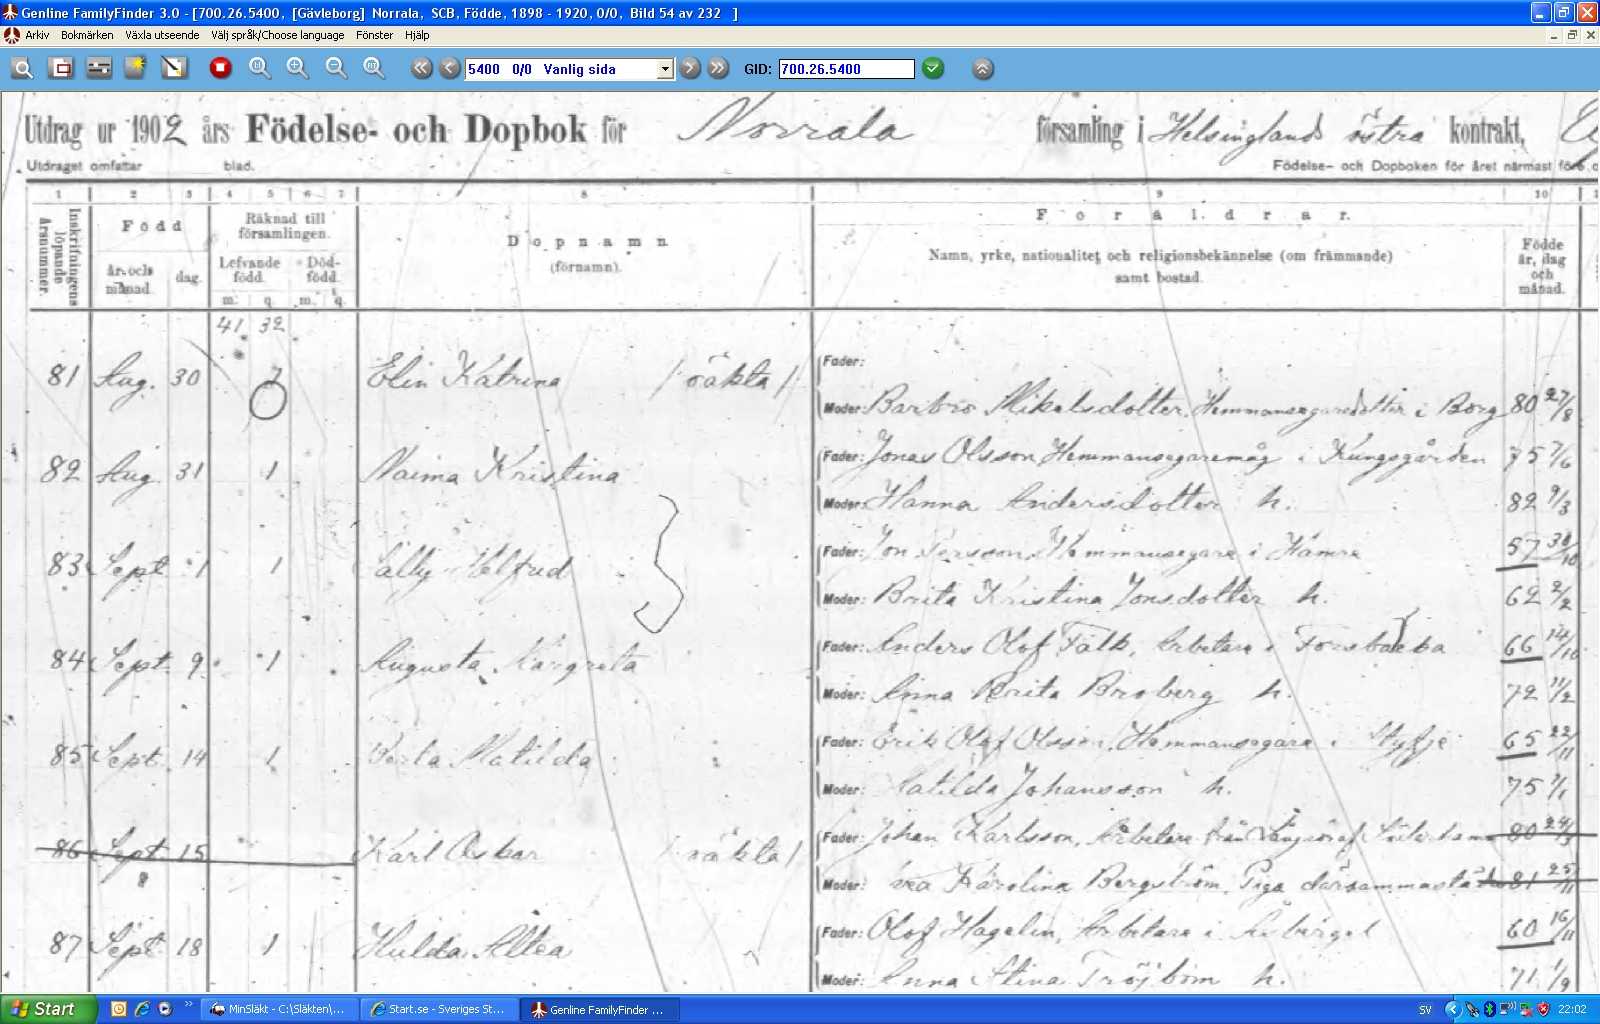 Genline FamilyFinder 3.0 - [700.26.5400, [Gävleborg] Norrala, SCB, Födde, 1898 - 1920, 0/0, Bild 54 av 232 ]
Arkiv Bokmärken Växla utseende Välj språk/Choose language Fönster Hjälp
5400 0/0 Vanlig sida GID: 700.26.5400
Utdrag ur 1902 års Födelse- och Dopbok för Norrala församling i Helsinglands östra kontrakt,
Utdraget omfattar blad. Födelse- och Dopboken för året närmast före
1 2 3 4 5 6 7 8 9 10
Inskrifningens löpande årsnummer.
Född
år och månad. dag.
Räknad till församlingen.
Lefvande född. Död-född.
m. q. m. q.
Dopnamn
(förnamn).
Föräldrar.
Namn, yrke, nationalitet och religionsbekännelse (om främmande)
samt bostad.
Födde år, dag och månad.
41 32
81 Aug. 30 1 Elin Katrina / oäkta /
Fader:
Moder: Barbro Mikelsdotter, Hemmansegaredotter i Borg 80 27/8
82 Aug. 31 1 Naima Kristina
Fader: Jonas Olsson Hemmansegaremåg i Kungsgården 75 7/6
Moder: Hanna Andersdotter h. 82 9/3
83 Sept. 1 1 Sally Helfrid
Fader: Jon Persson, Hemmansegare i Hamre 57 /10
Moder: Brita Kristina Jonsdotter h. 62 2/2
84 Sept. 9 1 Augusta Margreta
Fader: Anders Olof Fälb, Arbetare i Forsbacka 66 14/10
Moder: Anna Brita Broberg h. 72 11/2
85 Sept. 14 1 Matilda
Fader: Erik Olof Olsson, Hemmansegare i Styfje 65 22/11
Moder: Matilda Johansson h. 75 /1
86 Sept. 15 Karl Oskar / oäkta /
Fader: Johan Karlsson, Arbetare från af Söderhamn 80 24/3
Moder: Karolina Bergström, Piga därsammastädes 81 25/11
87 Sept. 18 1 Hulda Altea
Fader: Olof Hagelin, Arbetare i 60 16/11
Moder: Anna Stina Tröjbom h. 71 1/9
Start MinSläkt - C:\Släkten\... Start.se - Sveriges St... Genline FamilyFinder ... SV 22:02